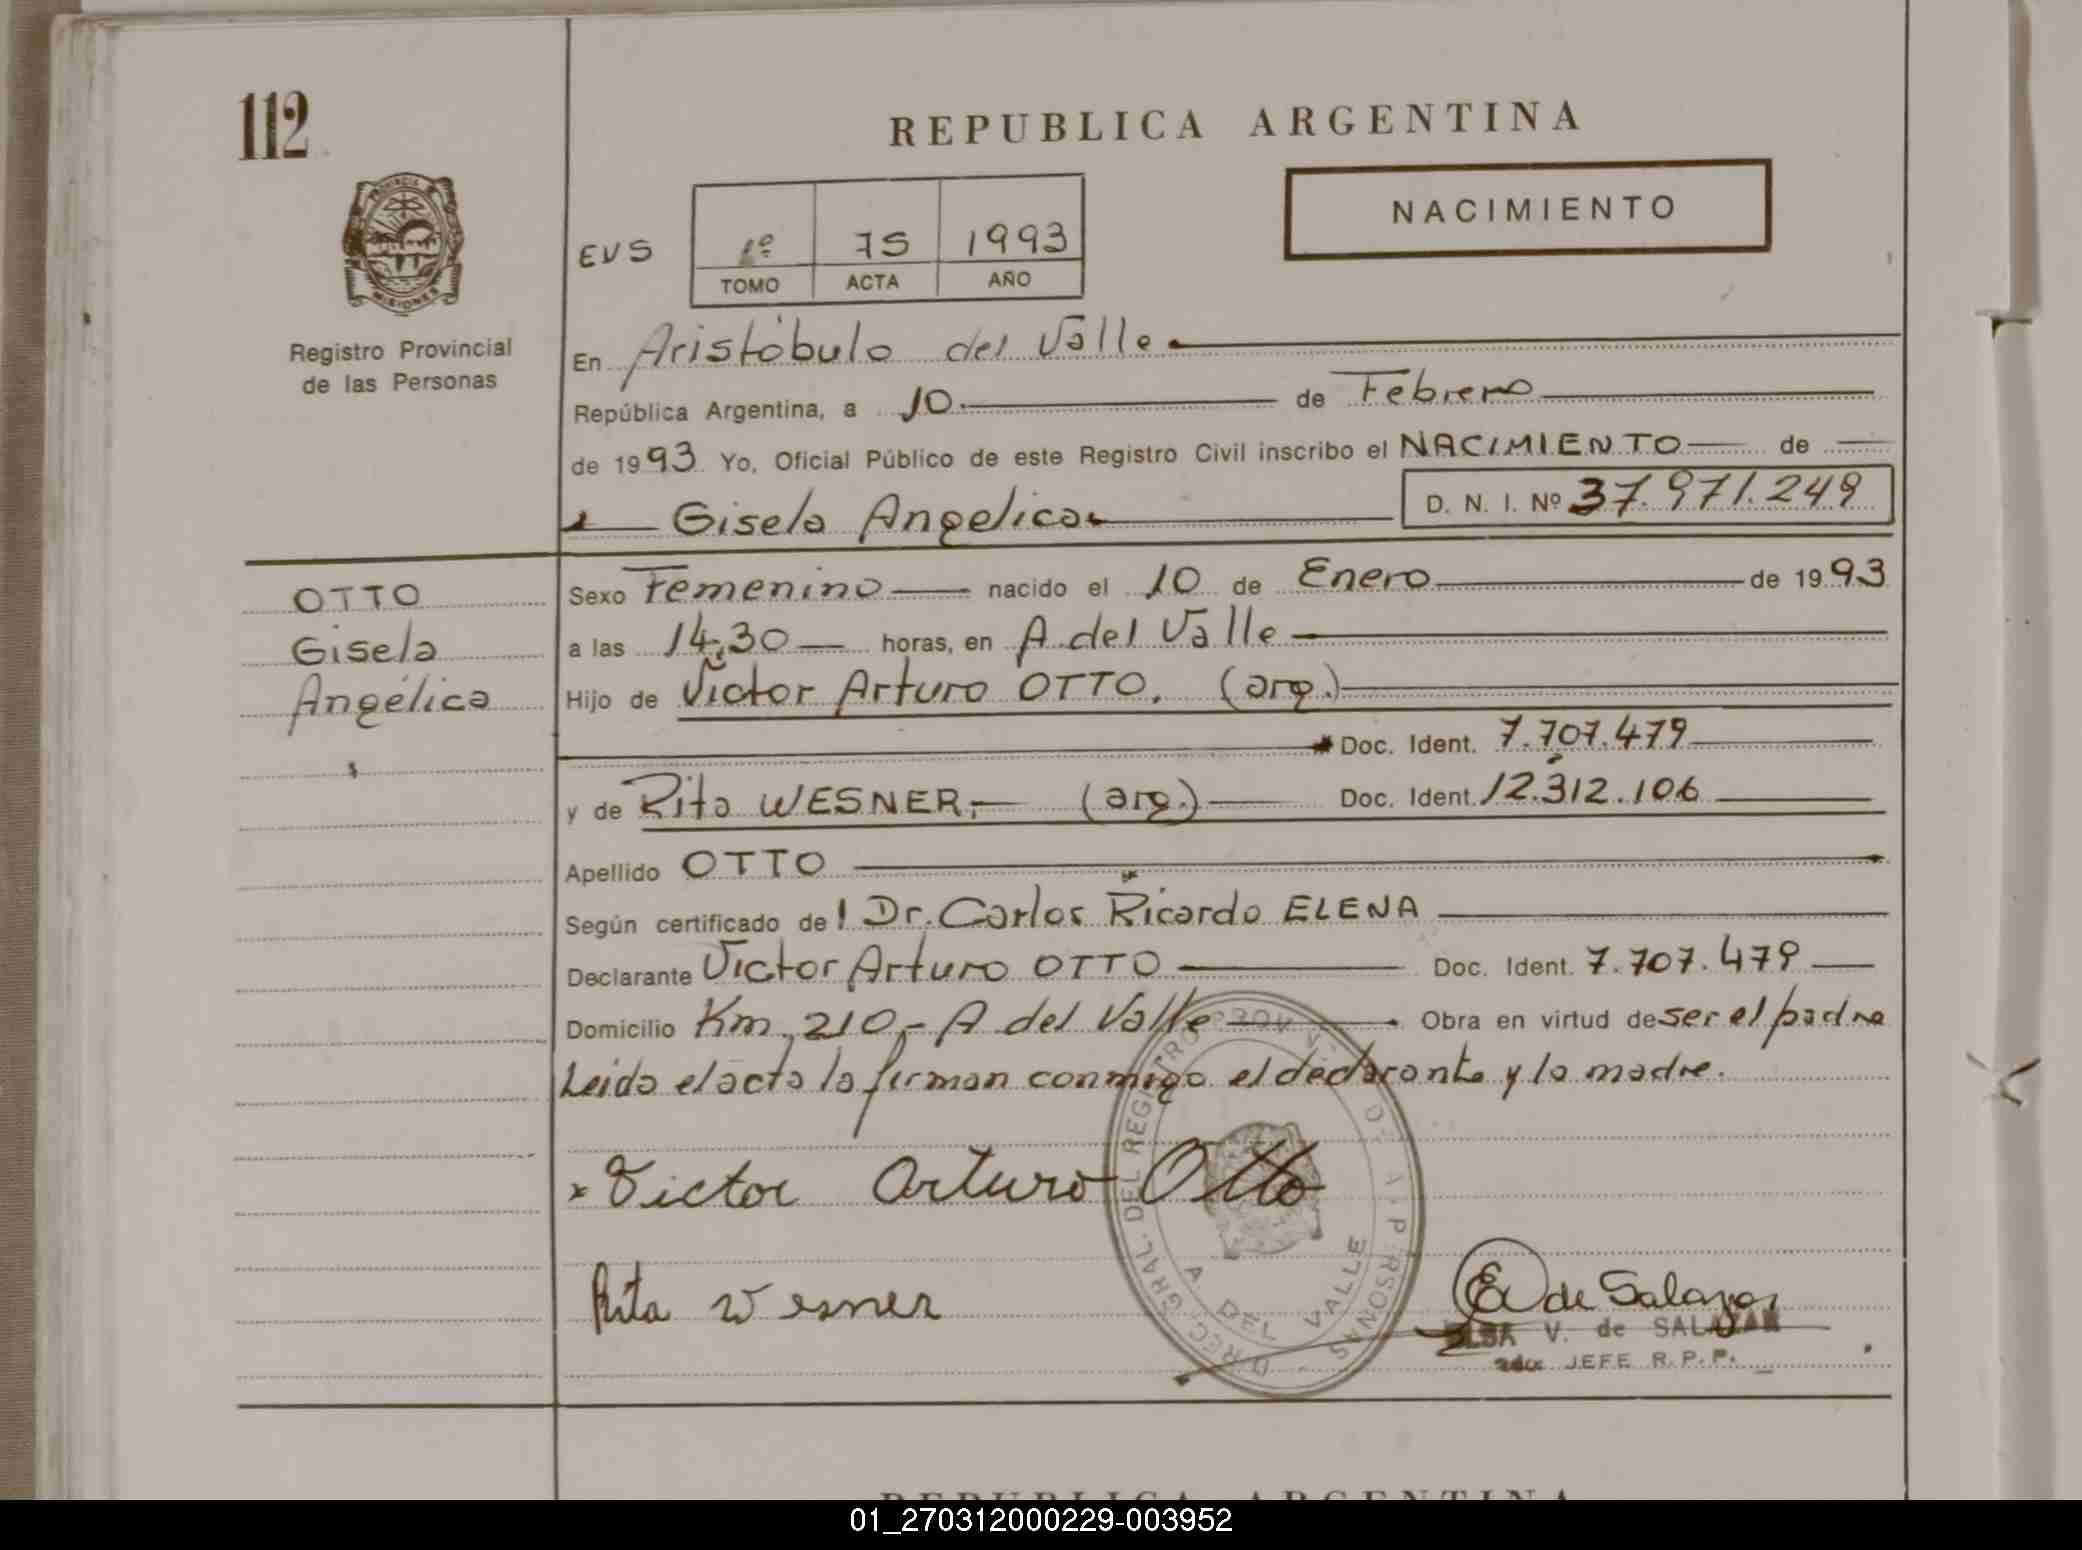 112
REPUBLICA ARGENTINA
NACIMIENTO
PROVINCIA DE
MISIONES
Registro Provincial
de las Personas
EVS
1º 75 1993
TOMO ACTA AÑO
En Aristóbulo del Valle
República Argentina, a 10 de Febrero
de 1993 Yo, Oficial Público de este Registro Civil inscribo el NACIMIENTO de
Gisela Angelica D. N. I. Nº 37.971.249
OTTO
Gisela
Angélica
Sexo Femenino nacido el 10 de Enero de 1993
a las 14,30 horas, en A. del Valle
Hijo de Victor Arturo OTTO. (arg.)
Doc. Ident. 7.707.479
y de Rita WESNER,- (arg.) Doc. Ident. 12.312.106
Apellido OTTO
Según certificado del Dr. Carlos Ricardo ELENA
Declarante Victor Arturo OTTO Doc. Ident. 7.707.479
Domicilio Km. 210,- A del Valle Obra en virtud de ser el padre
Leida el acta la firman conmigo el declarante y la madre.
Victor Arturo Otto
Rita Wesner
DIREC. GRAL. DEL REGISTRO PROV. DE LAS PERSONAS
A. DEL VALLE
E de Salazar
ELSA V. de SALAZAR
JEFE R.P.P.
REPUBLICA ARGENTINA
01_270312000229-003952